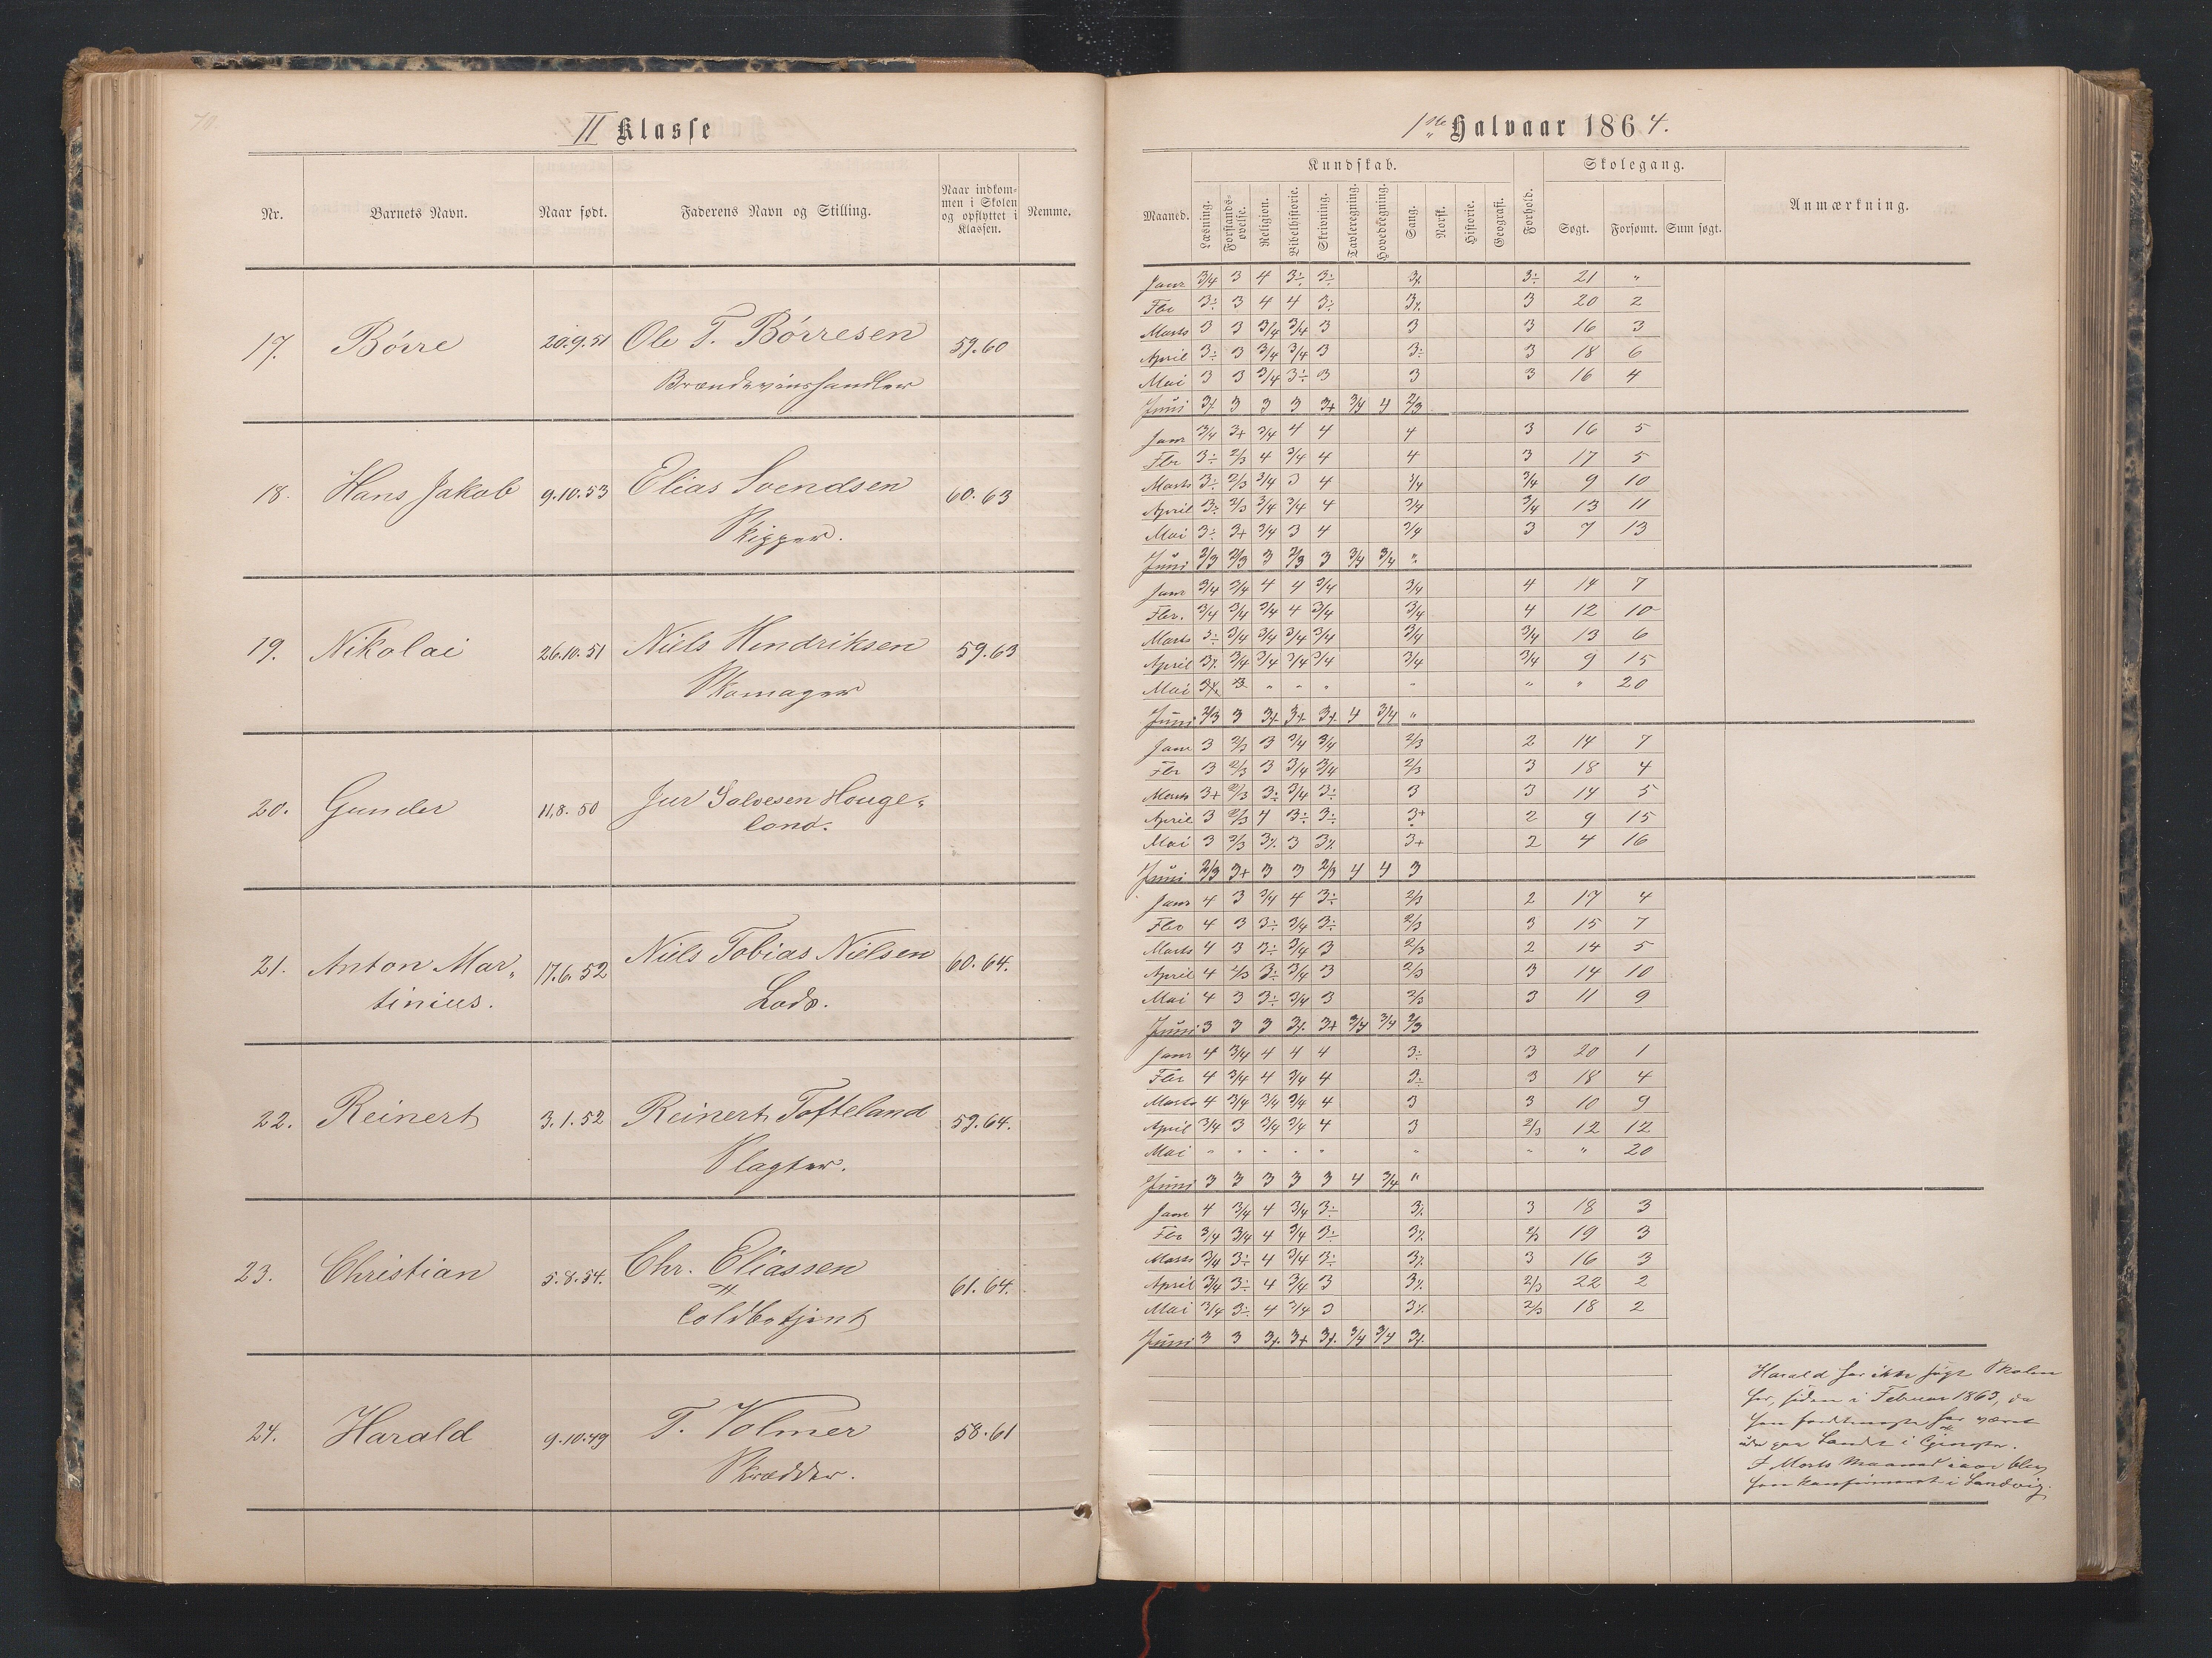 70.
II Klasse
Nr. Barnets Navn. Naar født. Faderens Navn og Stilling. Naar indkommen i Skolen og opflyttet i Klassen. Nemme.
17. Börre 20.9.51 Ole T. Börresen 59.60
Brændeviinshandler
18. Hans Jakob 9.10.53 Elias Svendsen 60.63
Skipper.
19. Nikolai 26.10.51 Niels Hendriksen 59.63
Skomager
20. Gunder 11.8.50 Jur Salvesen Houge-
land.
21. Anton Mar- 17.6.52 Niels Tobias Nielsen 60.64.
tinius. Lods.
22. Reinert 3.1.52 Reinert Tofteland 59.64.
Slagter.
23. Christian 5.8.54. Chr. Eliassen 61.64.
Toldbetjent
24. Harald 9.10.49 T. Volmer 58.61
Skrædder.
1ste Halvaar 1864.
Maaned. Kundskab. Forhold. Skolegang. Anmærkning.
Læsning. Forstandsøvelse. Religion. Bibelhistorie. Skrivning. Tavleregning. Hovedregning. Sang. Norsk. Historie. Geografi. Søgt. Forsømt. Sum søgt.
Janr 3/4 3 4 3÷ 3÷ 3⁒ 3÷ 21 "
Fbr 3÷ 3 4 4 3÷ 3⁒ 3 20 2
Marts 3 3 3/4 3/4 3 3 3 16 3
April 3÷ 3 3/4 3/4 3 3÷ 3 18 6
Mai 3 3 3/4 3÷ 3 3 3 16 4
Juni 3⁒ 3 3 3 3+ 3/4 4 2/3
Janr 3/4 3+ 3/4 4 4 4 3 16 5
Fbr 3÷ 2/3 4 3/4 4 4 3 17 5
Marts 3÷ 2/3 3/4 3 4 3/4 3/4 9 10
April 3÷ 2/3 3/4 3/4 4 3/4 3/4 13 11
Mai 3÷ 3+ 3/4 3 4 3/4 3 7 13
Juni 2/3 2/3 3 2/3 3 3/4 3/4 "
Janr 3/4 3/4 4 4 3/4 3/4 4 14 7
Fbr. 3/4 3/4 3/4 4 3/4 3/4 4 12 10
Marts 3÷ 3/4 3/4 3/4 3/4 3/4 3/4 13 6
April 3⁒ 3/4 3/4 3/4 3/4 3/4 3/4 9 15
Mai 3⁒ 3 " " " " " " 20
Juni 2/3 3 3⁒ 3+ 3+ 4 3/4 "
Janr 3 2/3 3 3/4 3/4 2/3 2 14 7
Fbr 3 2/3 3 3/4 3/4 2/3 3 18 4
Marts 3+ 2/3 3÷ 3/4 3÷ 3 3 14 5
April 3 2/3 4 3÷ 3÷ 3+ 2 9 15
Mai 3 2/3 3⁒ 3 3⁒ 3+ 2 4 16
Juni 2/3 3+ 3 3 2/3 4 4 3
Janr 4 3 3/4 4 3÷ 2/3 2 17 4
Fbr 4 3 3÷ 3/4 3÷ 2/3 3 15 7
Marts 4 3 3÷ 3/4 3 2/3 2 14 5
April 4 2/3 3÷ 3/4 3 2/3 3 14 10
Mai 4 3 3÷ 3/4 3 2/3 3 11 9
Juni 3 3 3 3⁒ 3+ 3/4 3/4 2/3
Janr 4 3/4 4 4 4 3÷ 3 20 1
Fbr 4 3/4 4 3/4 4 3÷ 3 18 4
Marts 4 3/4 3/4 3/4 4 3 3 10 9
April 3/4 3 3/4 3/4 4 3 2/3 12 12
Mai " " " " " " " " 20
Juni 3 3 3 3 3 4 3/4 "
Janr 4 3/4 4 3/4 3÷ 3⁒ 3 18 3
Fbr 3/4 3/4 4 3/4 3÷ 3⁒ 2/3 19 3
Marts 3/4 3÷ 4 3/4 3÷ 3⁒ 3 16 3
April 3/4 3÷ 4 3/4 3 3⁒ 2/3 22 2
Mai 3/4 3÷ 4 3/4 3 3⁒ 2/3 18 2
Juni 3 3 3⁒ 3+ 3⁒ 3/4 3/4 3⁒
Harald har ikke søgt Skolen
her, siden i Februar 1863, da
han har været
ude paa Landet i
I Marts Maaned iaar blev
han konfirmeret i Landvig.